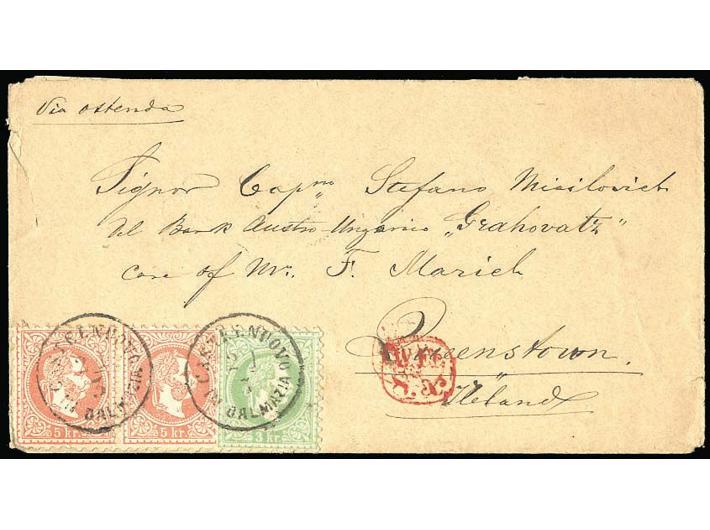 Via Ostenda
Signor Capno Stefano Misilovich
del Bark Austro-Ungarico „Grahovatz"
care of Mr. F. Marich
Queenstown
CASTELNUOVO
IN DALMAZIA
CASTELNUOVO
IN DALMAZIA
5 kr.
5 kr.
3 kr.